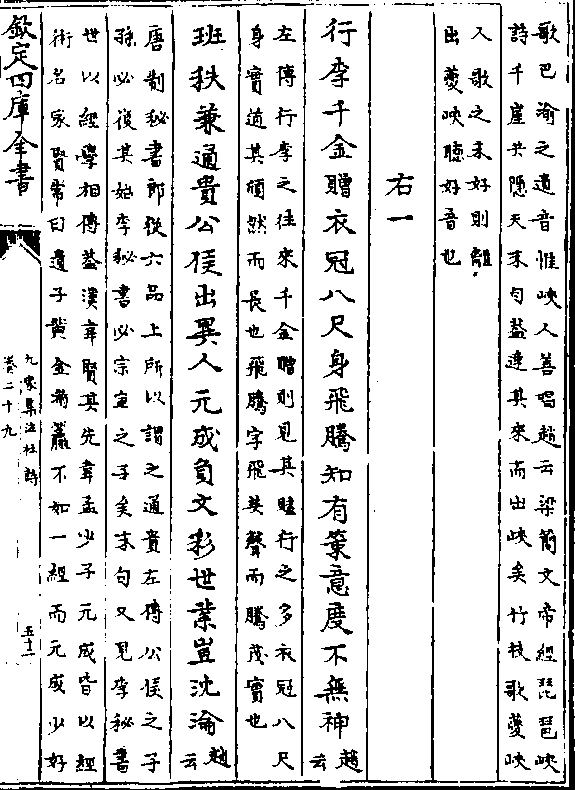 歌巴渝之遺音惟峽人善唱趙云梁簡文帝經琵琶峽
詩千崖共隱天末句葢達其來而出峽矣竹枝歌夔峽
人歌之未好則離
出夔峽聽好音也
右一
行李千金贈衣冠八尺身飛騰知有策意度不無神趙云
左傳行李之往來千金贈則見其贐行之多衣冠八尺
身實道其頎然而長也飛騰字飛英聲而騰茂實也
班秩兼通貴公侯出異人元成負文彩世業豈沈淪趙云
唐制秘書郎從六品上所以謂之通貴左傳公侯之子
孫必復其始李秘書必宗室之子矣末句又見李秘書
世以經學相傳葢漢韋賢其先韋孟少子元成皆以經
術名家賢常曰遺子黃金滿籯不如一經而元成少好
欽定四庫全書
九家集注杜詩
卷二十九
五十一